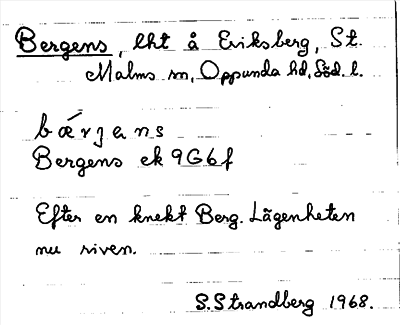 Bergens, lht å Eriksberg, St.
Malms sn, Oppunda hd, Söd. l.
bǽrjens
Bergens ek 9G6f
Efter en knekt Berg. Lägenheten
nu riven.
S. Strandberg 1968.